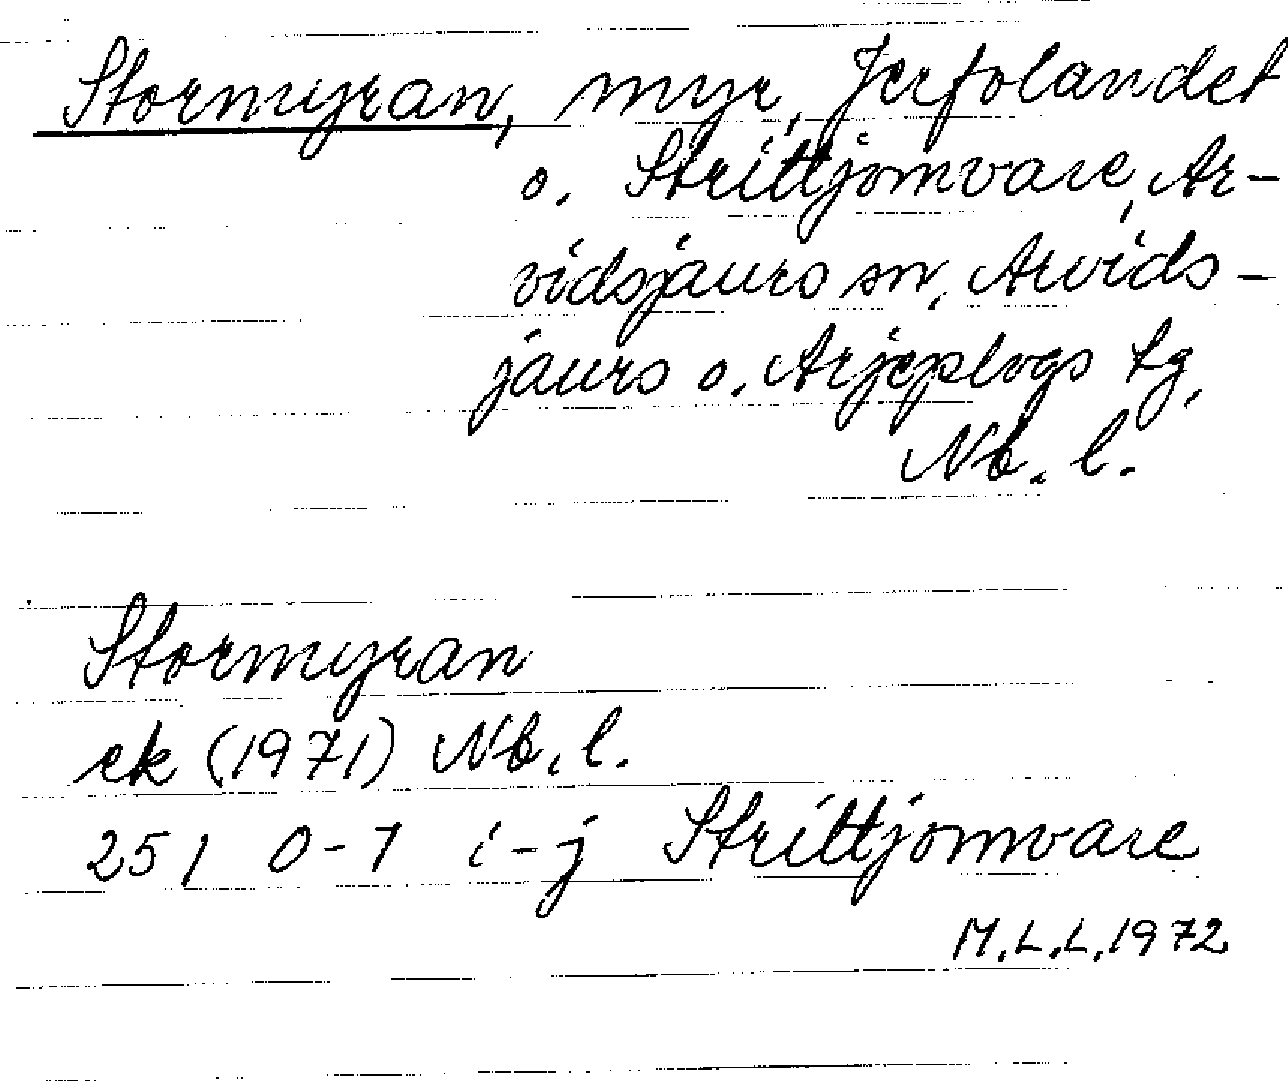 Stormyran, myr, Jerfolandet
o. Strittjomvare, Ar-
vidsjaurs sn, Arvids-
jaurs o. Arjeplogs tg,
Nb. l.
Stormyran
ek (1971) Nb. l.
25 I 0-1 i-j Strittjomvare
M.L.L. 1972